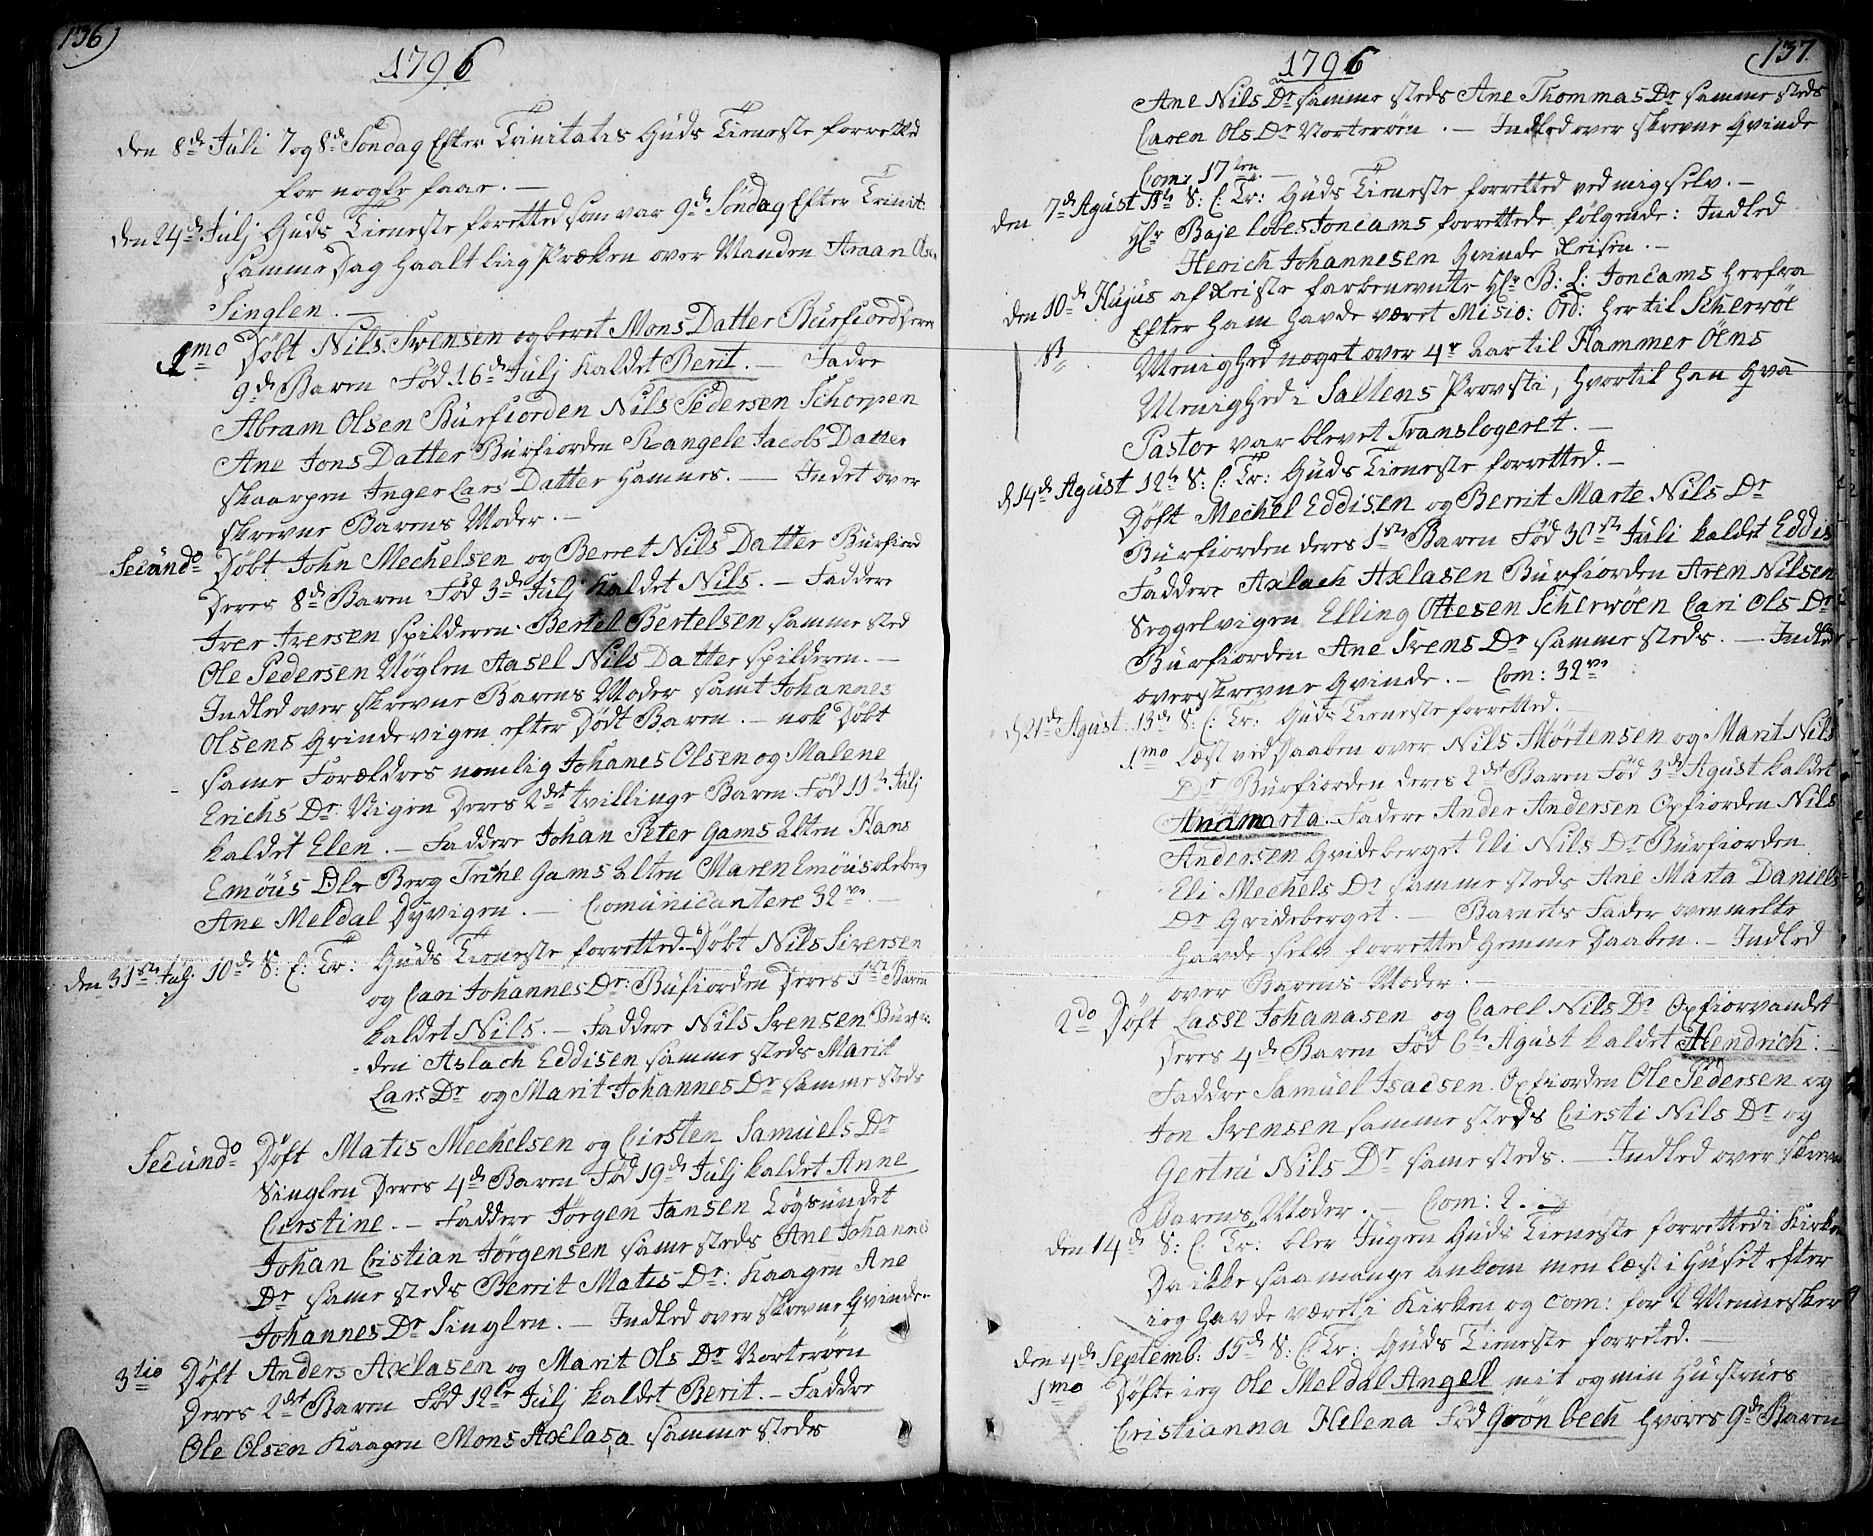 136)
1796
den 8de Juli 7 og 8de Söndag Efter Trinitatis Guds Tieneste forretted
for nogle faae. —
den 24de Julj Guds Tieneste foretted som var 9de Söndag Efter Trinit:
samme Dag haalt Præken over Manden Olsen
Singlen. —
1mo Döbt Nils Svensen og beret Mons Datter Burfiord Deres
9de Baren Föd 16de Julj kaldet Berit. — Fadre
Abram Olsen Burfiorden Nils Pedersen Schorpen
Ane Jons Datter Burfiorden Rangele Jacobs Datter
skaarpen Inger Lars Datter Hamnes. — Indet over
skrevne Barens Moder. —
Secundo Döbt John Mechelsen og Berret Nils Datter Burfiord
Deres 8de Baren Föd 3de Julj kaldet Nils. — Faddere
Iver Iversen spilderen. Bertel Bertelsen samme sted
Ole Pedersen Uöglen Aasel Nils Datter spilderen. —
Indled over skrevne Barens Moder samt Johannes
Olsens Qvinde vigen efter Dödt Baren. — nok Döbt
same Forældres nemlig Johanes Olsen og Malene
Erichs Dr: Vigen Deres 2det tvillinge Baren Föd 11te Julj
kaldet Elen. — Faddere Johan Peter Gams Alten Hans
Emöus Ole Berg Trine Gams Alten Maren Emöus
Ane Meldal Dyvigen. — Comunicantere 32ve. —
den 31ste Julj 10de S: E: Tr: Guds Tieneste forretted. Döbt Nils Siversen
og Cari Johannes Dr: Bufiorden Deres 1ste Baren
kaldet Nils. — Faddere Nils Svensen Burfior-
den Aslach Eddisen samme steds Marit
Lars Dr og Marit Johannes Dr samme steds
Secundo Döft Matis Mechelsen og Cirsten Samuels Dr
Singlen Deres 4de Baren Föd 19de Julj kaldet Anne
Cirstine. — Faddere Jörgen Jansen Lögsundet
Johan Cristian Jörgensen same steds Ane Johannes
Dr same steds Berrit Matis Dr: Kaagen Ane
Johannes Dr Singlen. — Indled over skrevne Qvinde.
3tio Döft Anders Axlasen og Marit Ols Dr Vorteröen
Deres 2det Baren Föd 12te Julj kaldet Berit. — Faddre
Ole Olsen Kaagen Mons Axlasa samme steds
137
1796
Ane Nils Dr samme steds Ane Thommas Dr samme steds
Caren Ols Dr Vorteröen. — Indled over skrevne Qvinde
Com: 17ten. —
den 7de Agust 11te S: E: Tr: Guds Tieneste forretted ved mig selv. —
Hr Baje Lobes Joncams forrettede fölgende: Indled
Herich Johannesen Qvinde Reisen. —
den 10de Hujus af Reiste Hr B: L: Joncams herfra
Efter ham havde været Misio: Ord: her til Scherröe
Menighed noget over 4r Aar til Hammer Öens
Menighed i Saltens Provsti, hvortil han qva
Pastor var blevet Translogeret. —
d 14de Agust 12te S: E: Tr: Guds Tieneste forretted. —
Döft Mechel Eddisen og Berrit Marte Nils Dr
Burfiorden deres 1ste Baren Föd 30ste Juli kaldet Eddis
Faddere Axlach Axlasen Burfiorden Aren Nilsen
Seggelvigen Elling Ottesen Scherwöen Cari Ols Dr
Burfiorden Ane Svens Dr samme steds. — Indled
overskrevne Qvinde. — Com: 32ve
d 21de Agust: 13de S: E: Tr: Guds Tieneste forretted.
1mo Læst ved Daaben over Nils Mörtensen og Marit Nils
Dr Burfiorden deres 2det Baren Föd 3de Agust kaldet
Anamarta. Fadere Ander Andersen Oxfiorden Nils
Andersen Qvideberget Eli Nils Dr Burfiorden
Eli Mechels Dr samme steds Ane Marta Daniels
Dr Qvideberget. — Barnets Fader ovenmelte
havde selv forretted Hemme Daaben. — Indled
over Barens Moder. —
2do Döft Lasse Johanasen og Carel Nils Dr Oxfiorvandet
Deres 4de Baren Föd 6te Agust kaldet Hendrich. —
Faddre Samuel Isacsen Oxfiorden Ole Pedersen og
Jon Svensen samme steds Cirsti Nils Dr og
Gertru Nils Dr same steds. — Indled over skrevne
Barens Moder. — Com: 2. —
den 14de S: E: Tr: blev Ingen Guds Tieneste forretted i Kirken
Da ikke saa mange ankom men læst i Huset efter
ieg havde været i Kirken og Com: for 2 Mennesker
den 4de Septemb: 15de S: E: Tr: Guds Tieneste forreted. —
1mo Döfte ieg Ole Meldal Angell mit og min Hustrues
Cristianna Helena Föd Grönbech hvores 9de Baren